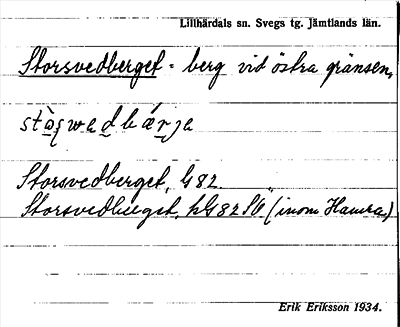 Lillhärdals sn. Svegs tg. Jämtlands län.
Storsvedberget = berg vid östra gränsen.
Storsvedberget, G 82.
Storsvedberget, hG 82 SV. (inom Hamra)
Erik Eriksson 1934.